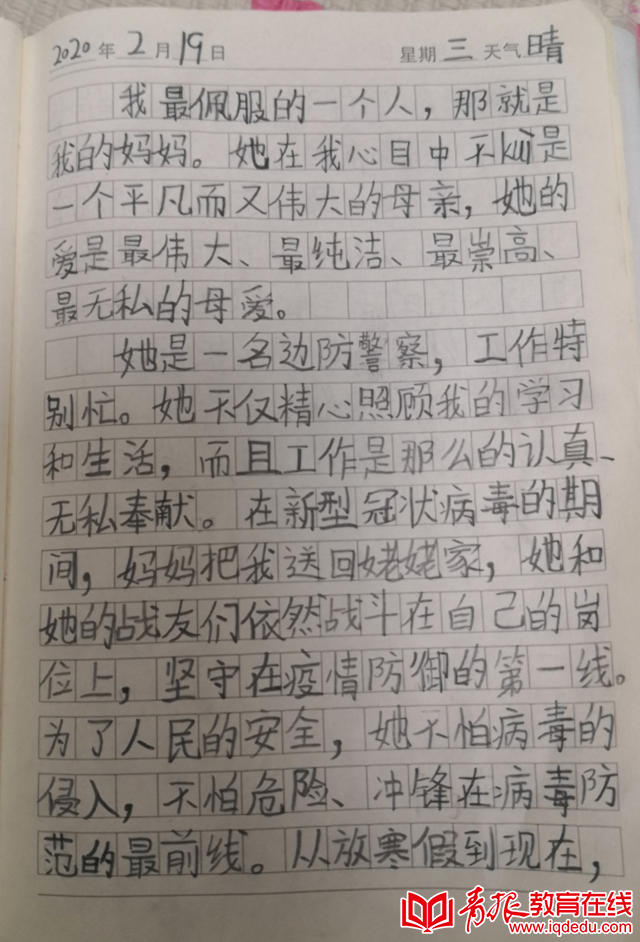 2020年2月19日 星期三 天气晴
我最佩服的一个人，那就是
我的妈妈。她在我心目中不kuì是
一个平凡而又伟大的母亲，她的
爱是最伟大、最纯洁、最崇高、
最无私的母爱。
她是一名边防警察，工作特
别忙。她不仅精心照顾我的学习
和生活，而且工作是那么的认真、
无私奉献。在新型冠状病毒的期
间，妈妈把我送回姥姥家，她和
她的战友们依然战斗在自己的岗
位上，坚守在疫情防御的第一线。
为了人民的安全，她不怕病毒的
侵入，不怕危险、冲锋在病毒防
范的最前线。从放寒假到现在，
青报教育在线
www.iqdedu.com